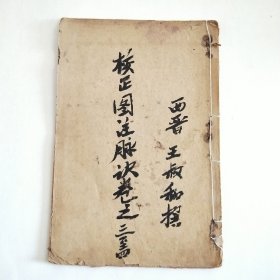 西晋 王叔和撰
校正图注脉诀卷之三四